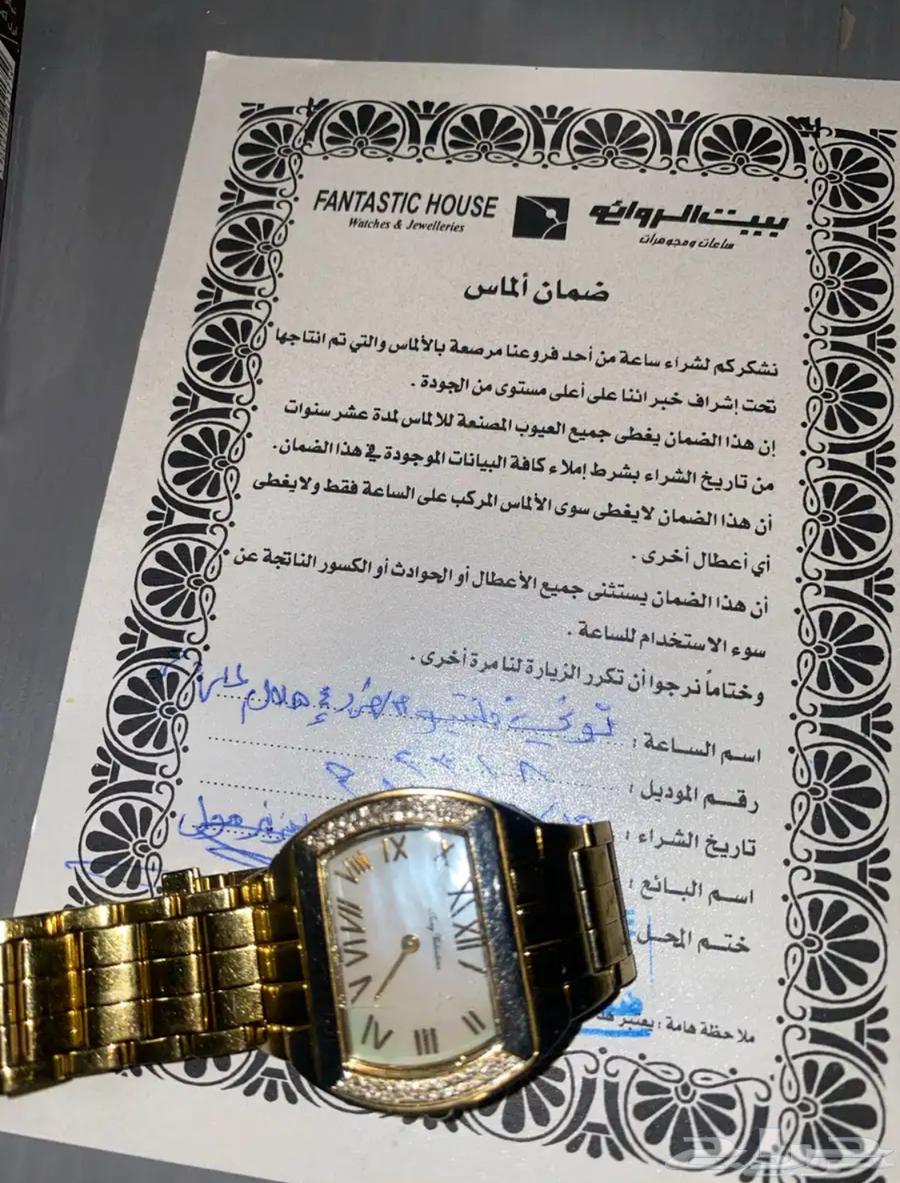 FANTASTIC HOUSE بيت الروائع
Watches & Jewelleries ساعات ومجوهرات
ضمان ألماس
نشكركم لشراء ساعة من أحد فروعنا مرصعة بالألماس والتي تم انتاجها
تحت إشراف خبرائنا على أعلى مستوى من الجودة .
إن هذا الضمان يغطى جميع العيوب المصنعة للالماس لمدة عشر سنوات
من تاريخ الشراء بشرط إملاء كافة البيانات الموجودة في هذا الضمان.
أن هذا الضمان لايغطى سوى الألماس المركب على الساعة فقط ولايغطى
أي أعطال أخرى .
أن هذا الضمان يستثنى جميع الأعطال أو الحوادث أو الكسور الناتجة عن
سوء الاستخدام للساعة .
وختاماً نرجوا أن تكرر الزيارة لنا مرة أخرى .
اسم الساعة :
رقم الموديل :
تاريخ الشراء :
اسم البائع :
ختم المحل
ملاحظة هامة : يعتبر
IX X XI XII I II III IV V VI VII VIII
حراج